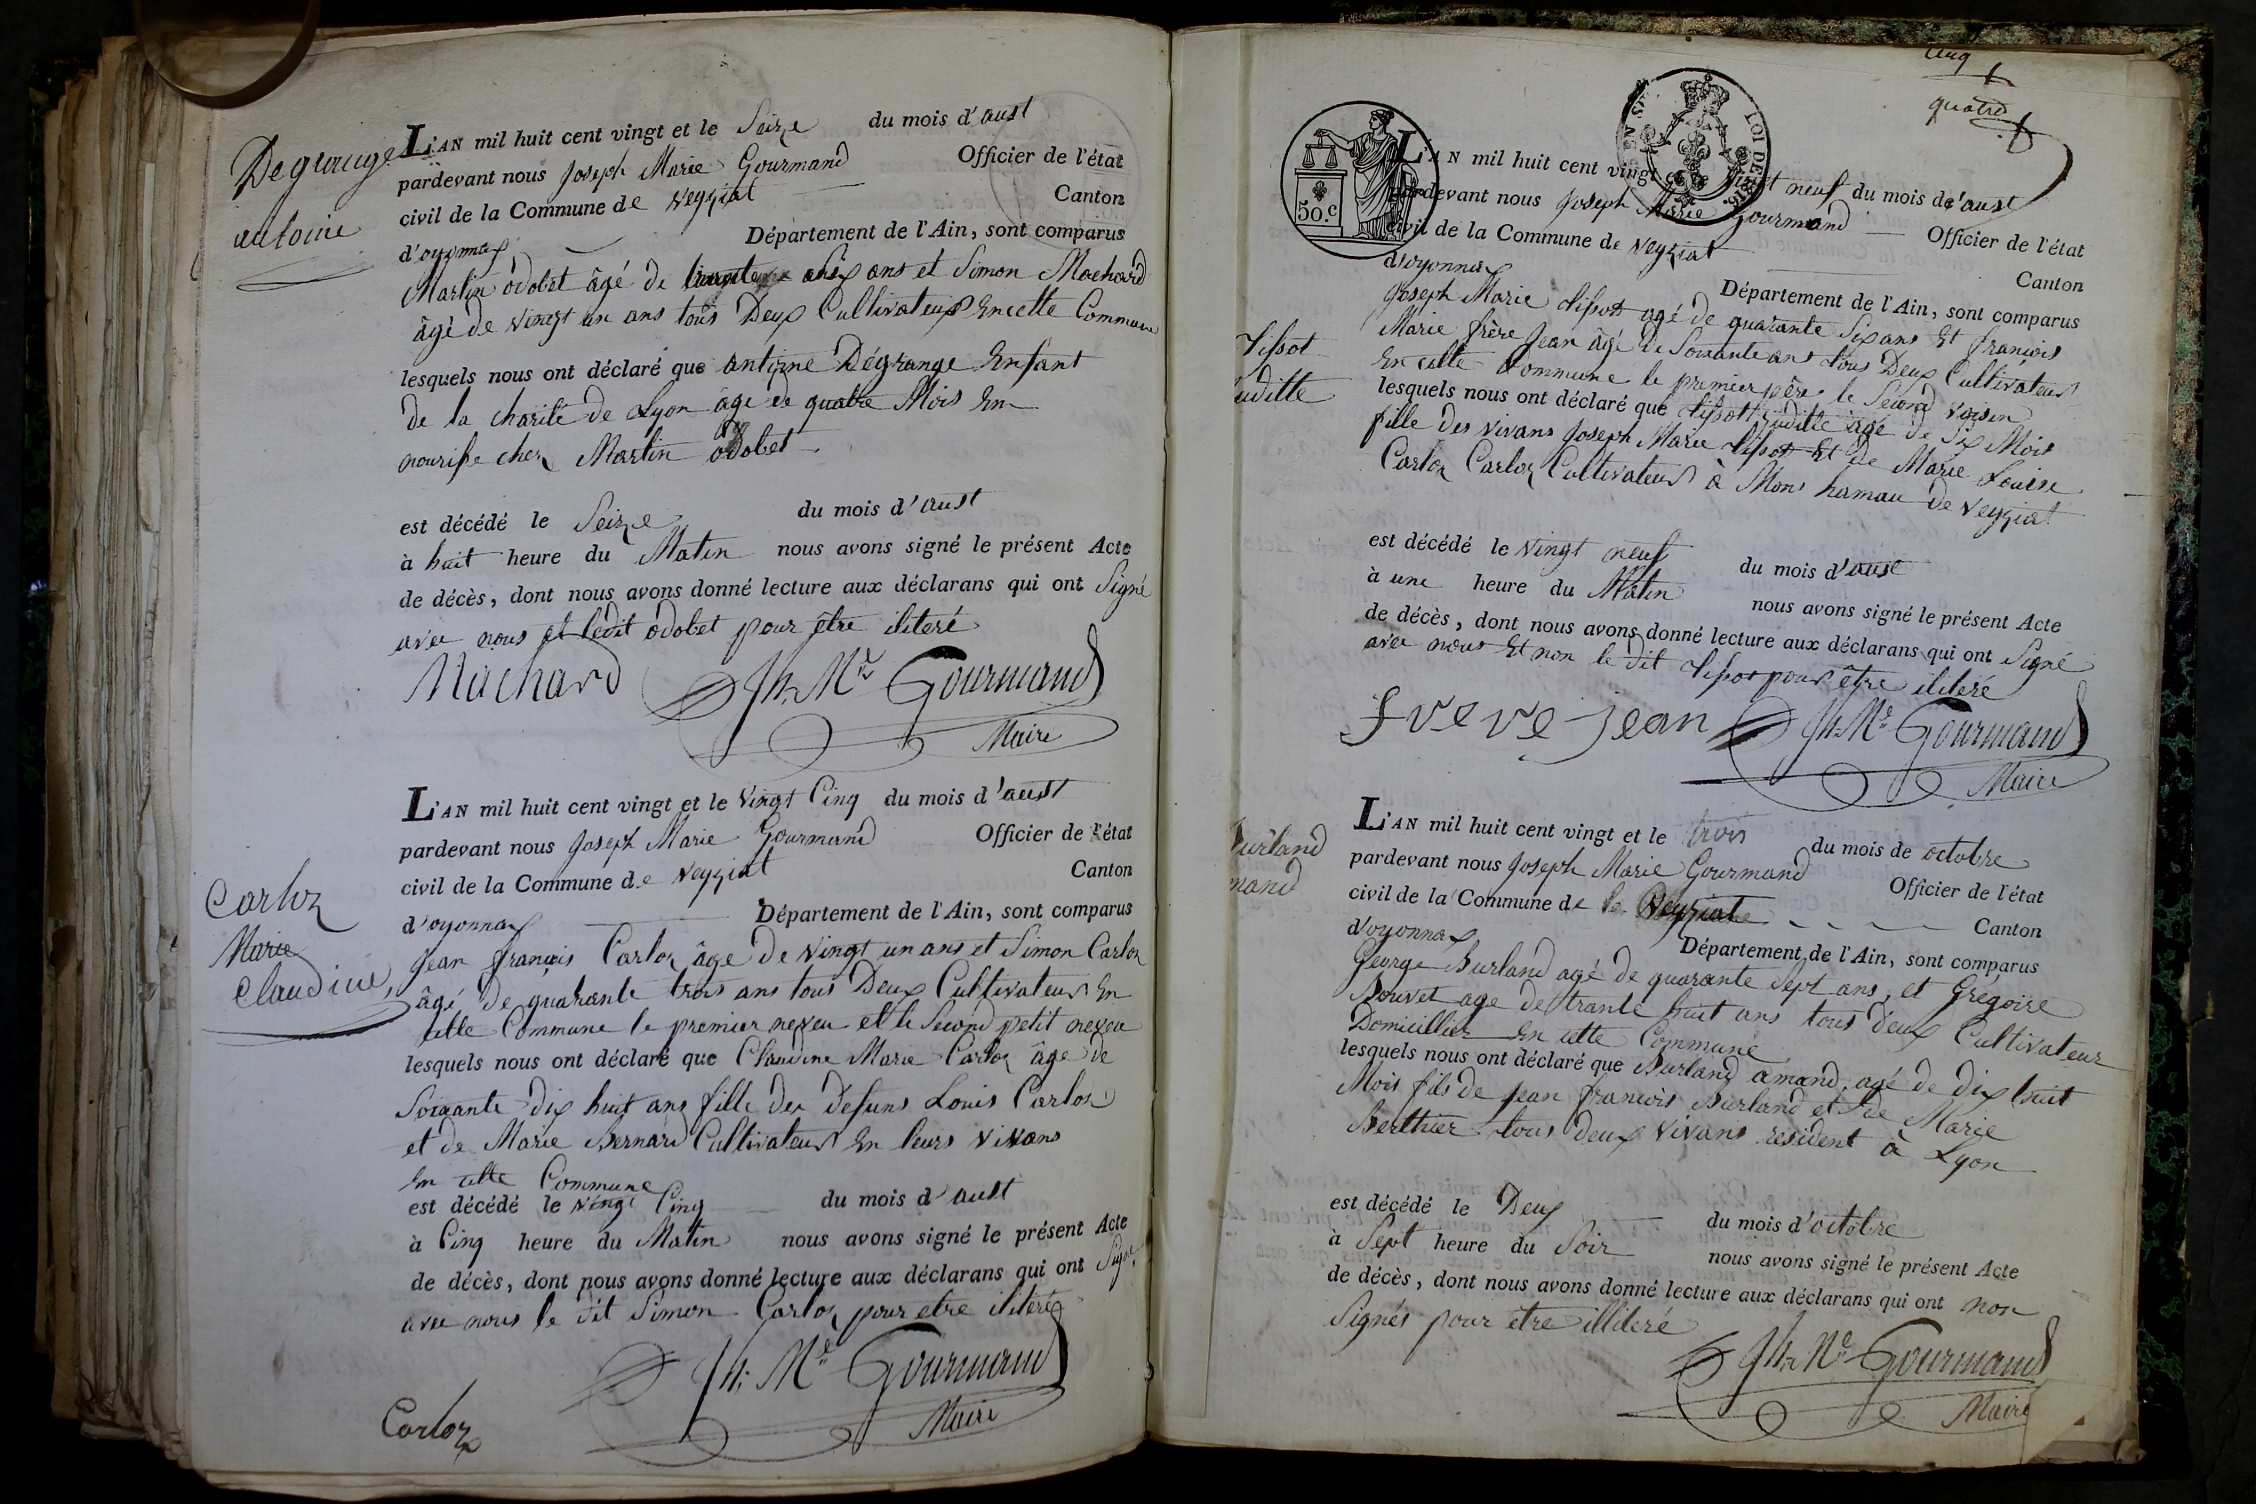 Degrange
antoine
L'AN mil huit cent vingt et le Seize du mois d'aust
pardevant nous Joseph Marie Gourmand Officier de l'état
civil de la Commune de Veyziat Canton
d'oyonnax Département de l'Ain, sont comparus
Martin odobet âgé de ans et Simon Machard
âgé de vingt un ans tous Deux Cultivateurs En cette Commune
lesquels nous ont déclaré que antoine Dégrange Enfant
de la charité de Lyon âgé de quatre Mois En
nourisse chez Martin odobet
est décédé le Seize du mois d'aust
à huit heure du Matin nous avons signé le présent Acte
de décès, dont nous avons donné lecture aux déclarans qui ont Signé
avec nous et ledit odobet pour être iliteré
Machard Jh. Me Gourmand
Maire
Carloz
Marie
Claudine
L'AN mil huit cent vingt et le vingt Cinq du mois d'aust
pardevant nous Joseph Marie Gourmand Officier de l'état
civil de la Commune de Veyziat Canton
d'oyonnax Département de l'Ain, sont comparus
Jean françois Carloz âge de vingt un ans et Simon Carloz
âgé de quarante trois ans tous Deux Cultivateurs En
cette Commune le premier neveu et le Second petit neveu
lesquels nous ont déclaré que Claudine Marie Carloz âge de
Soixante dix huit ans fille des defuns Louis Carloz
et de Marie Bernard Cultivateurs En leurs vivans
En cette Commune
est décédé le vingt Cinq du mois d'aust
à Cinq heure du Matin nous avons signé le présent Acte
de décès, dont nous avons donné lecture aux déclarans qui ont Signé
avec nous le dit Simon Carloz pour etre iliteré
Jh. Me Gourmand
Maire
Carloz
cinq
quatre
50.c
LOI DE 1816.
Tissot
uditte
L'AN mil huit cent vingt et le vingt neuf du mois de'aust
pardevant nous Joseph Marie Gourmand Officier de l'état
civil de la Commune de Veyziat Canton
d'oyonnax Département de l'Ain, sont comparus
Joseph Marie tissot agé de quarante Six ans Et françois
Marie frère Jean âgé de Soixante ans tous Deux Cultivateurs
En cette Commune le premier père le Second voisin
lesquels nous ont déclaré que tissot juditte âgé de Six Mois
fille des vivans Joseph Marie tissot Et de Marie Louise
Carloz Carloz Cultivateurs à Mons hamau de Veyziat
est décédé le vingt neuf du mois d'aust
à une heure du Matin nous avons signé le présent Acte
de décès, dont nous avons donné lecture aux déclarans qui ont Signé
avec nous Et non le dit tissot pour être iliteré
frere jean Jh. Me Gourmand
Maire
Burland
mand
L'AN mil huit cent vingt et le trois du mois de octobre
pardevant nous Joseph Marie Gourmand Officier de l'état
civil de la Commune de Veyziat Canton
d'oyonnax Département de l'Ain, sont comparus
George Burland agé de quarante Sept ans, et Grégoire
Bouvet age de trante huit ans tous deux Cultivateur
Domicillier En cette Commune
lesquels nous ont déclaré que Burland amand, agé de dix huit
Mois fils de Jean françois Burland et de Marie
Berthier tous deux vivans resident à Lyon
est décédé le Deux du mois d'octobre
à Sept heure du Soir nous avons signé le présent Acte
de décès, dont nous avons donné lecture aux déclarans qui ont non
Signés pour être illiteré
Jh. Me Gourmand
Maire